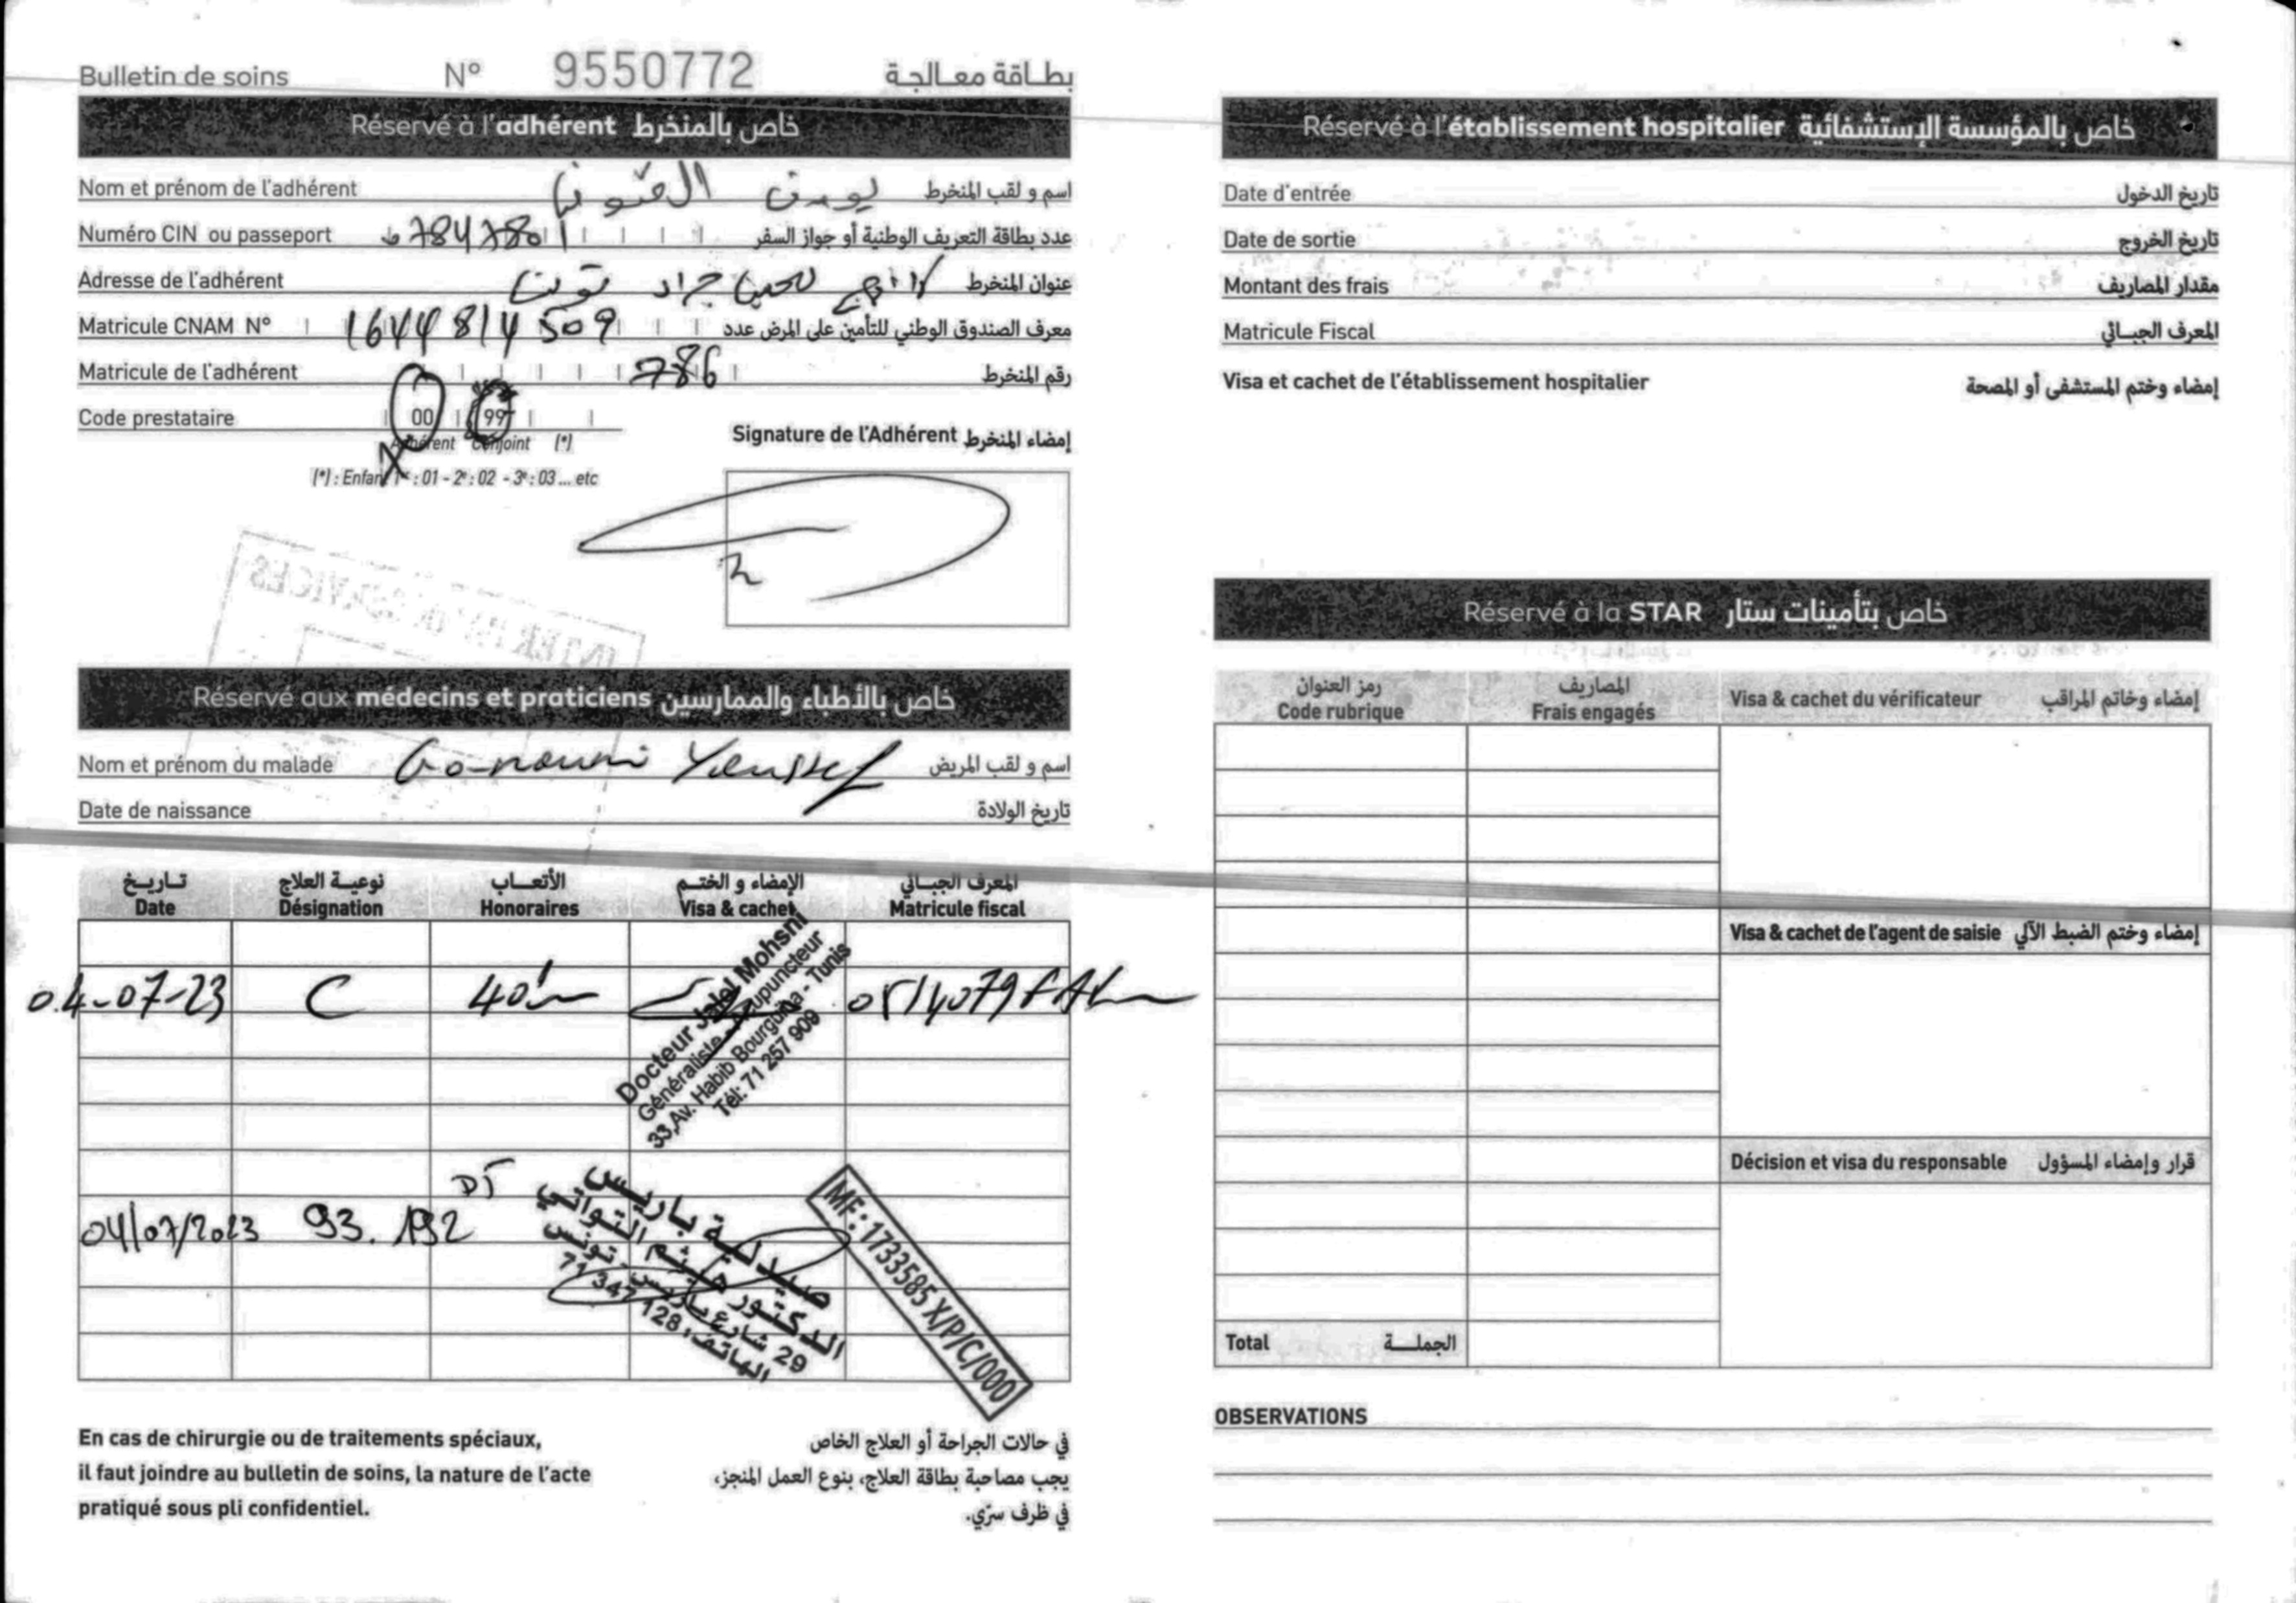 Bulletin de soins N° 9550772 بطاقة معالجة
Réservé à l'adhérent خاص بالمنخرط
Nom et prénom de l'adhérent يوسف القنوني اسم و لقب المنخرط
Numéro CIN ou passeport عدد بطاقة التعريف الوطنية أو جواز السفر
Adresse de l'adhérent تونس عنوان المنخرط
Matricule CNAM N° 1644814509 معرف الصندوق الوطني للتأمين على المرض عدد
Matricule de l'adhérent 786 رقم المنخرط
Code prestataire 00 99
Adhérent Conjoint (*)
(*) : Enfant 1er : 01 - 2e : 02 - 3e : 03 ... etc
Signature de l'Adhérent إمضاء المنخرط
INTER SERVICES
Réservé aux médecins et praticiens خاص بالأطباء والممارسين
Nom et prénom du malade Gannouni Youssef اسم و لقب المريض
Date de naissance تاريخ الولادة
تاريخ نوعية العلاج الأتعاب الإمضاء و الختم المعرف الجبائي
Date Désignation Honoraires Visa & cachet Matricule fiscal
04-07-23 C 40
Docteur Jalel Mohsni
Généraliste - Acupuncteur
33,Av. Habib Bourguiba - Tunis
Tél: 71 257 909
04/07/2023 93.192 DT
صيدلية باريس
الدكتور هيثم التواتي
29 شارع باريس - تونس
الهاتف: 71 347 128
MF: 1733585 X/P/C/000
En cas de chirurgie ou de traitements spéciaux,
il faut joindre au bulletin de soins, la nature de l'acte
pratiqué sous pli confidentiel.
في حالات الجراحة أو العلاج الخاص
يجب مصاحبة بطاقة العلاج، بنوع العمل المنجز،
في ظرف سرّي.
Réservé à l'établissement hospitalier خاص بالمؤسسة الإستشفائية
Date d'entrée تاريخ الدخول
Date de sortie تاريخ الخروج
Montant des frais مقدار المصاريف
Matricule Fiscal المعرف الجبائي
Visa et cachet de l'établissement hospitalier إمضاء وختم المستشفى أو المصحة
Réservé à la STAR خاص بتأمينات ستار
رمز العنوان المصاريف
Code rubrique Frais engagés Visa & cachet du vérificateur إمضاء وخاتم المراقب
Visa & cachet de l'agent de saisie إمضاء وختم الضبط الآلي
Décision et visa du responsable قرار وإمضاء المسؤول
Total الجملة
OBSERVATIONS